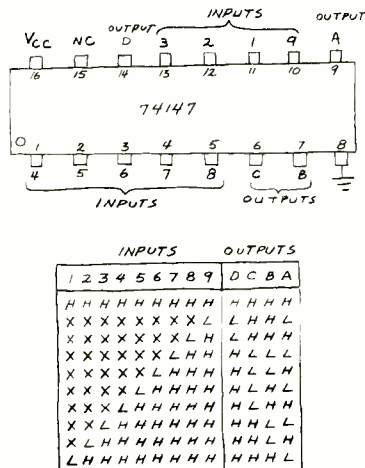 INPUTS
OUTPUT OUTPUT
VCC NC D 3 2 1 9 A
16 15 14 13 12 11 10 9
74147
1 2 3 4 5 6 7 8
4 5 6 7 8 C B
INPUTS OUTPUTS
INPUTS OUTPUTS
1 2 3 4 5 6 7 8 9 D C B A
H H H H H H H H H H H H H
X X X X X X X X L L H H L
X X X X X X X L H L H H H
X X X X X X L H H H L L L
X X X X X L H H H H L L H
X X X X L H H H H H L H L
X X X L H H H H H H L H H
X X L H H H H H H H H L L
X L H H H H H H H H H L H
L H H H H H H H H H H H L